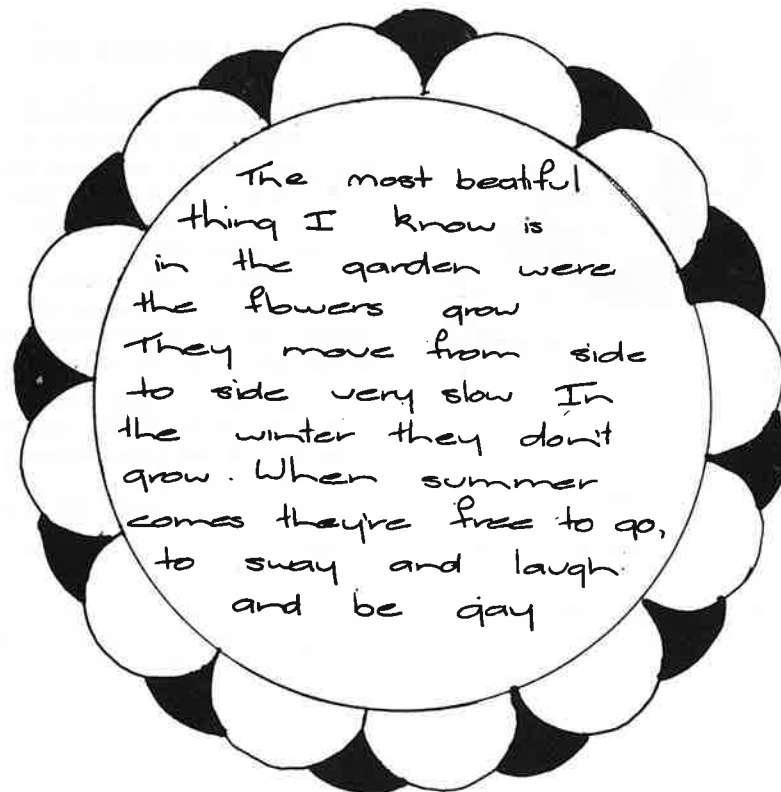 The most beatiful
thing I know is
in the garden were
the flowers grow
They move from side
to side very slow In
the winter they don't
grow. When summer
comes they're free to go,
to sway and laugh
and be gay